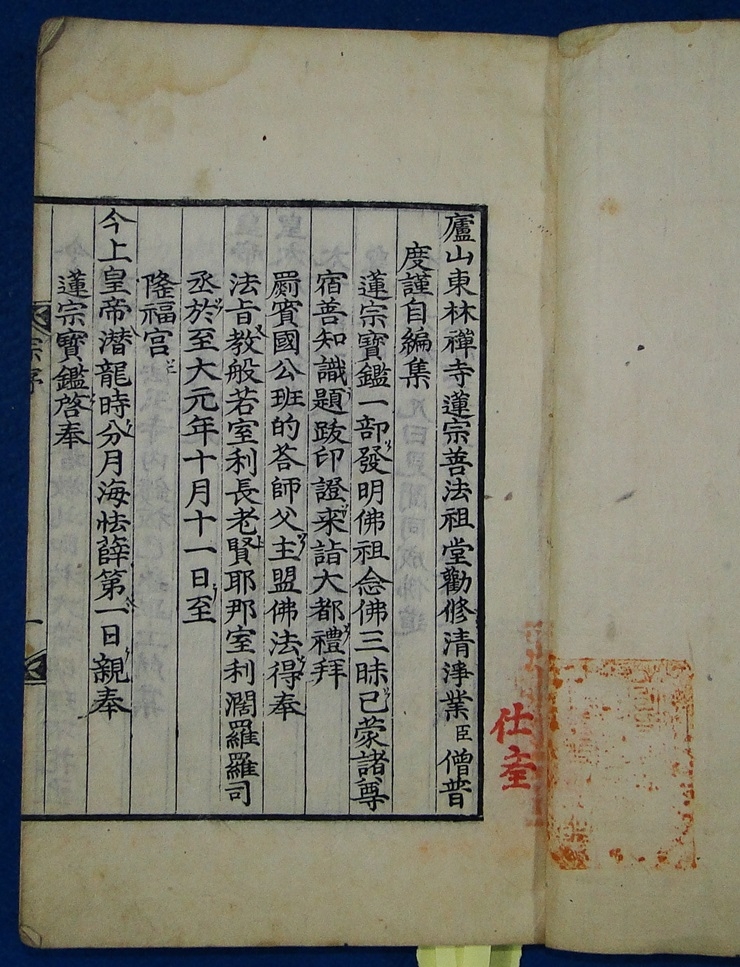 廬山東林禪寺蓮宗善法祖堂勸修清淨業臣僧普
度謹自編集
蓮宗寶鑑一部發明佛祖念佛三昧已蒙諸尊
宿善知識題跋印證來詣大都禮拜
罽賓國公班的荅師父主盟佛法得奉
法旨教般若室利長老賢耶那室利濶羅羅司
丞於至大元年十月十一日至
隆福宮
今上皇帝潛龍時分月海怯薛第一日親奉
蓮宗寶鑑啓奉
宗序
一
仕㐀